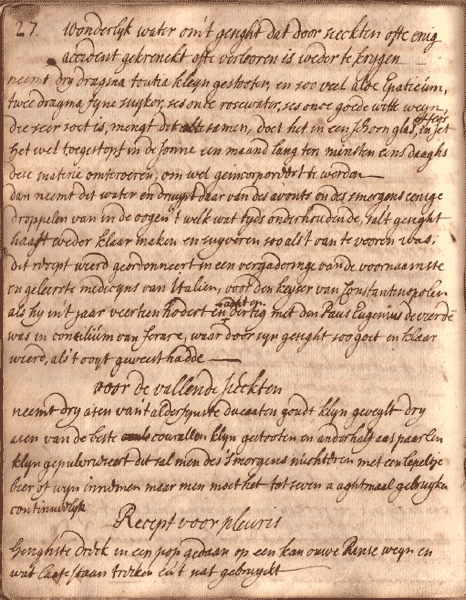 27. wonderlyk water om't gesight dat door sieckten ofte enig
accident gekrenckt ofte verlooren is weder te krygen
neemt dry dragma tutia kleyn gestooten, en soo veel aloe Epaticum,
twee dragma fyne suyker, ses onse rosewater, ses onse goede witte weyn,
die seer soet is, mengt dit alle samen, doet het in een schoon glas, en set
het wel toegestopt in de sonne een maand lang ten minsten eens daaghs
dese materie omroeren, om wel geincorporeert te worden
dan neemt dit water en druypt daar van des avonts en des smorgens eenige
droppelen van in de oogen 't welk wat tyds onderhoudende, salt gesight
haast weder klaar maken en suyveren so als't van te vooren was;
dit recept wierd geordonneert in een vergaderinge van de voornaamste
en geleerste medicyns van Italien, voor den keyser van Constantinopolen
als hy in't jaar veertien hondert en dertig met den Paus Eugenius de vierde
was in consilium van ferare, waar door syn gesight soo goet en klaar
wierd, als't ooyt geweest hadde
voor de vallende sieckten
neemt dry asen van't alderfynste ducaaten goudt klyn gevylt dry
asen van de beste corallen klyn gestooten en anderhalf aas paarlen
klyn gepulveriseert dit sal men des smorgens nuchteren met een lepeltje
bier of wyn innemen maar men moet het tot seven a aghtmaal gebruyken
continuelyk
Recept voor pleuris
in een pop gedaan op een kan ouwe Rinse weyn en
wat laate staan trecken en't nat gebruykt